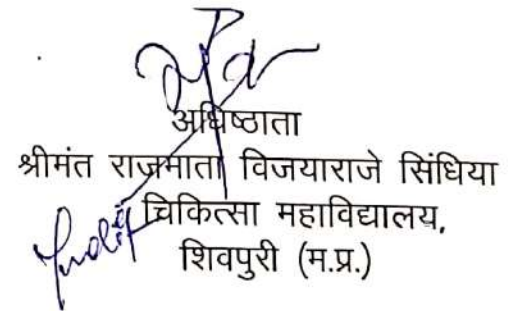 अधिष्ठाता
श्रीमंत राजमाता विजयाराजे सिंधिया
चिकित्सा महाविद्यालय,
शिवपुरी (म.प्र.)